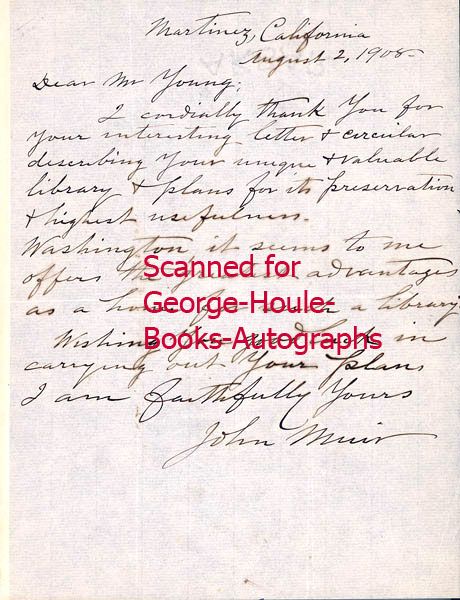 Martinez, California
August 2, 1908
Dear Mr Young;
I cordially thank you for
your interesting letter & circular
describing your unique & valuable
library & plans for its preservation
& highest usefulness.
Washington it seems to me
offers the advantages
as a home for such a library
Wishing you good luck in
carrying out your plans
I am faithfully yours
John Muir
Scanned for
George-Houle-
Books-Autographs